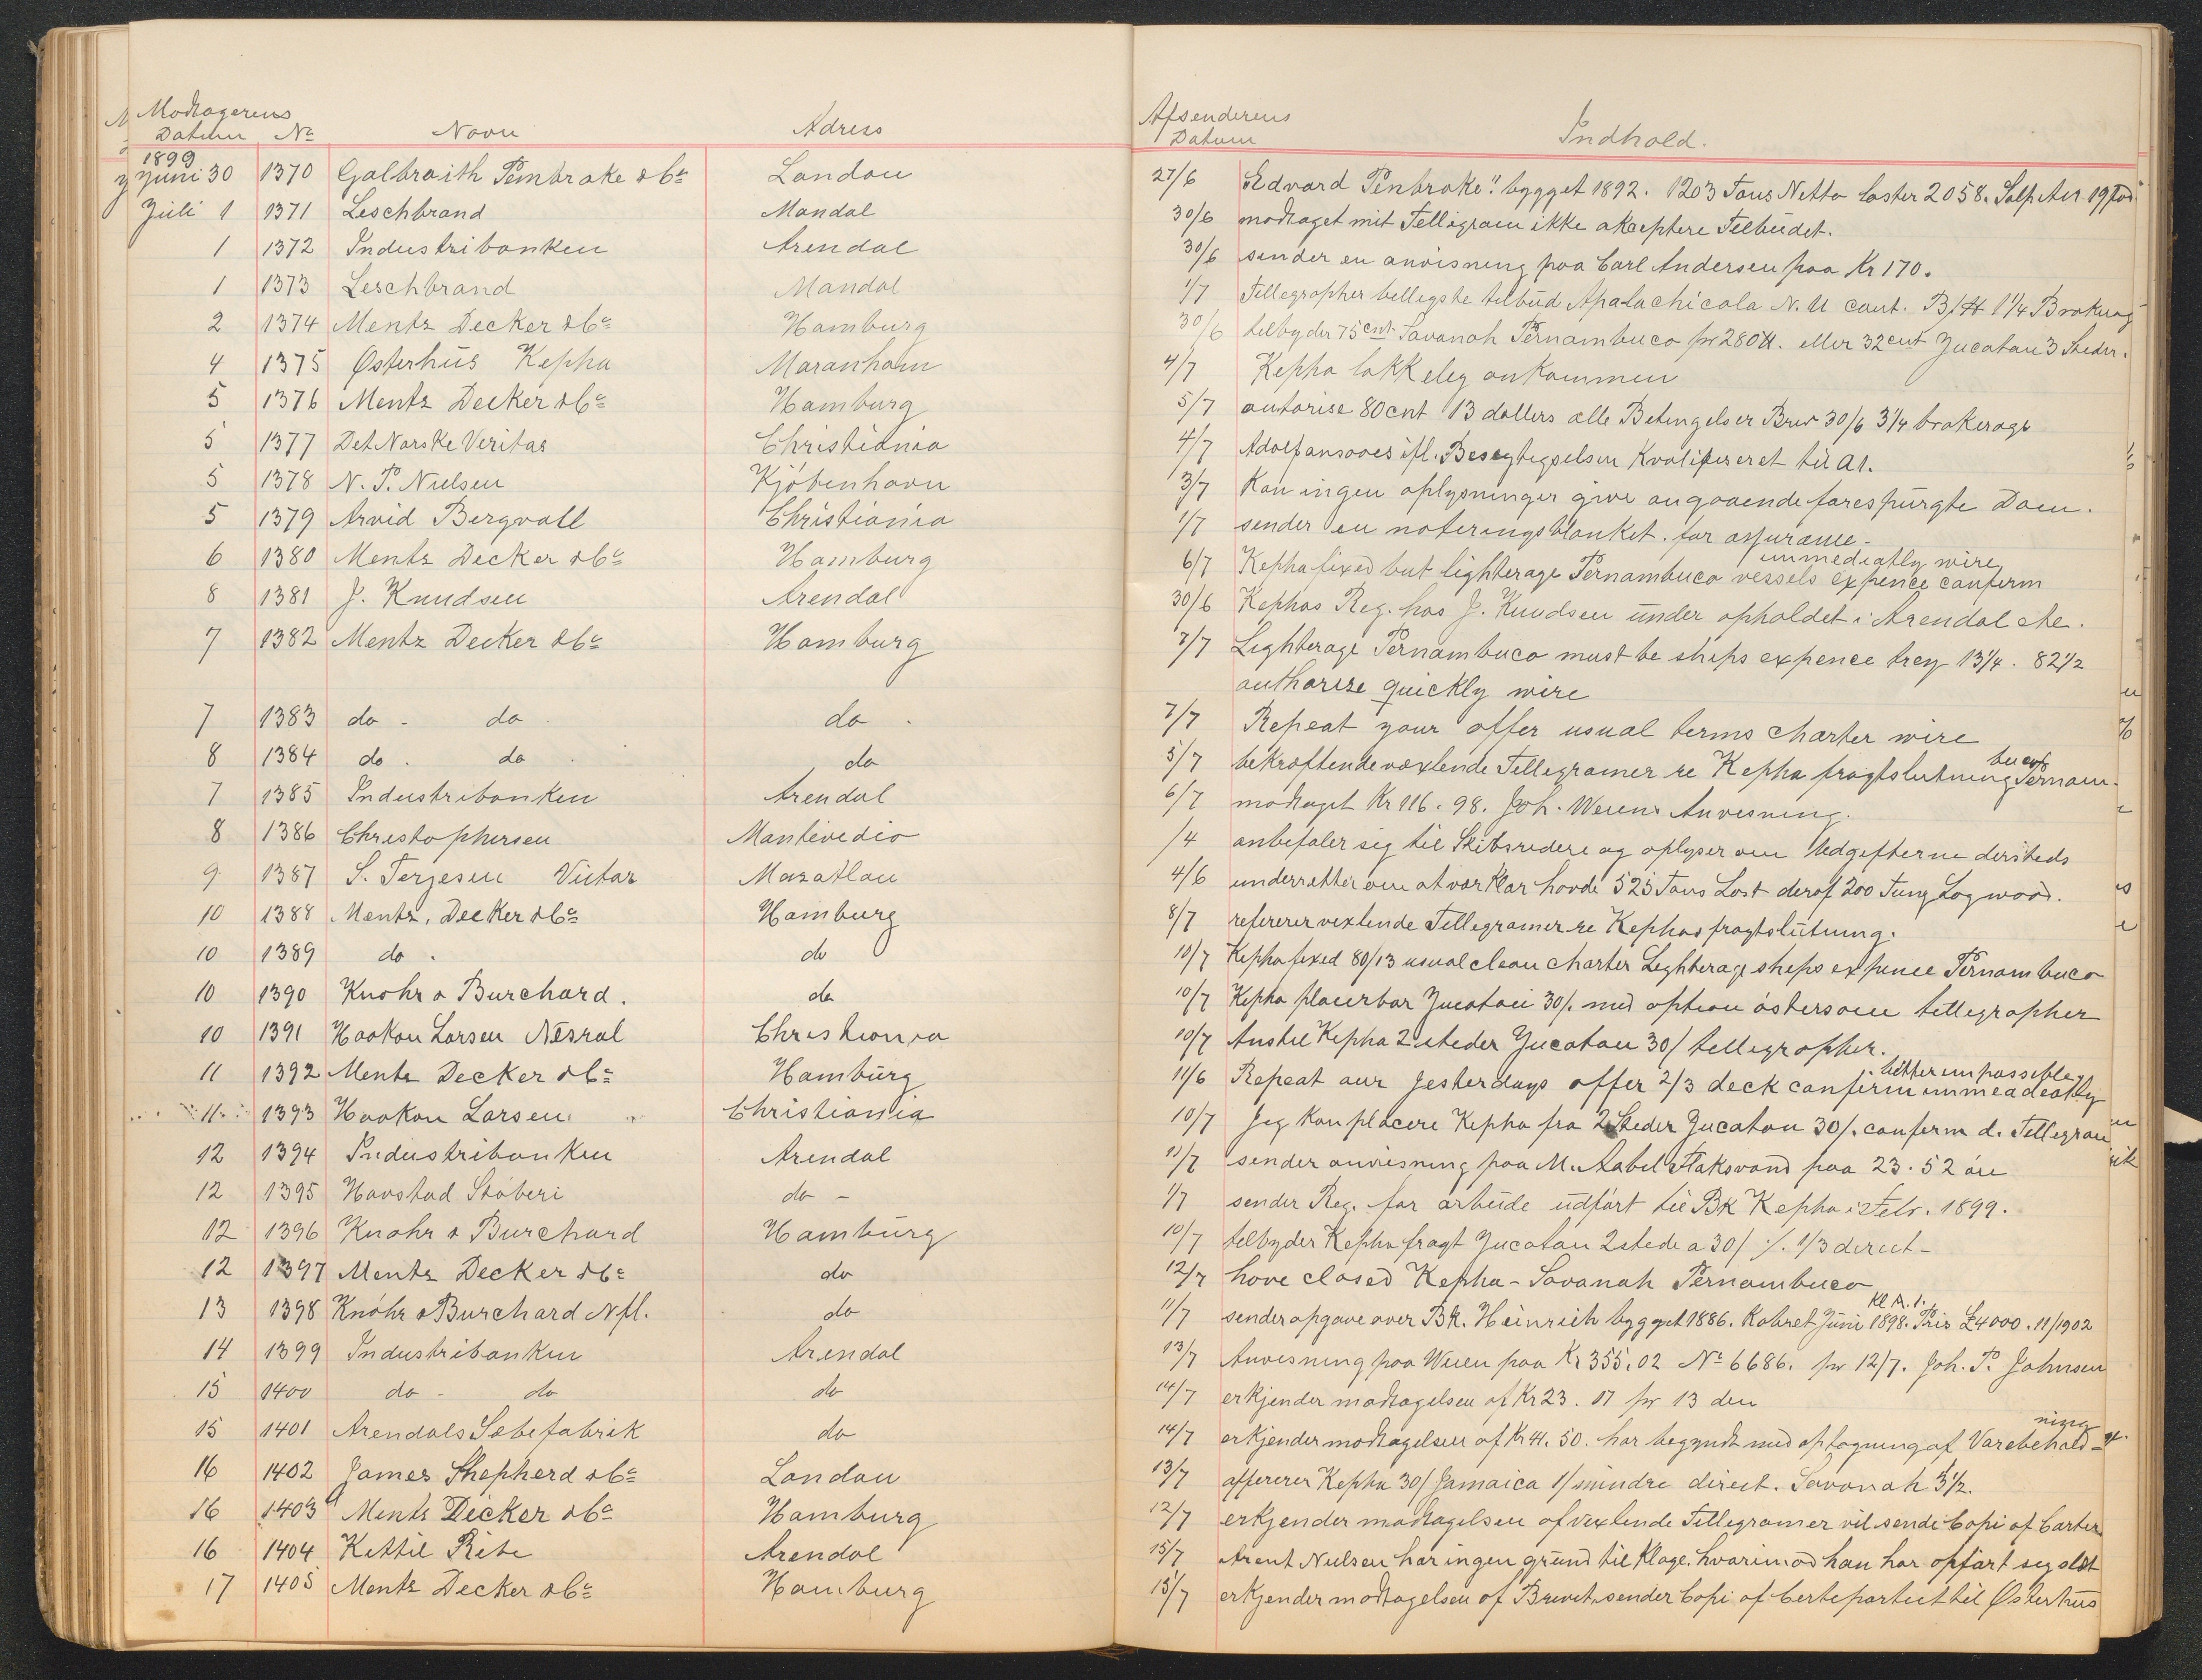 Modtagerens
Datum № Navn Adress
1899
Juni 30 1370 Galbraith Pembroke & Co London
Juli 1 1371 Leschbrand Mandal
1 1372 Industribanken Arendal
1 1373 Leschbrand Mandal
2 1374 Mentz Decker & Co Hamburg
4 1375 Østerhus Kepha Maranham
5 1376 Mentz Decker & Co Hamburg
5 1377 Det Norske Veritas Christiania
5 1378 N. P. Nielsen Kjöbenhavn
5 1379 Arvid Bergvall Christiania
6 1380 Mentz Decker & Co Hamburg
8 1381 J. Knudsen Arendal
7 1382 Mentz Decker & Co Hamburg
7 1383 do - do do .
8 1384 do . do . do
7 1385 Industribanken Arendal
8 1386 Christophersen Montevedio
9 1387 S. Terjesen Victar Mazatlan
10 1388 Mentz, Decker & Co Hamburg
10 1389 do . do
10 1390 Knohr & Burchard. do
10 1391 Haakon Larsen Nesral Christiania
11 1392 Mentz Decker & Co Hamburg
11 1393 Haakon Larsen Christiania
12 1394 Industribanken Arendal
12 1395 Havstad Stöberi do -
12 1396 Knohr & Burchard Hamburg
12 1397 Mentz Decker & Co do
13 1398 Knöhr & Burchard Nfl. do
14 1399 Industribanken Arendal
15 1400 do - do do
15 1401 Arendals Sæbefabrik do
16 1402 James Shepherd & Co London
16 1403 Mentz Decker & Co Hamburg
16 1404 Kettil Ribe Arendal
17 1405 Mentz Decker & Co Hamburg
Afsenderens
Datum Indhold.
27/6 Edvard Penbroke" bygget 1892. 1203 Tons Netto laster 2058. Salpeter 19 fod.
30/6 modtaget mit Telligram ikke akseptere Tilbudet.
30/6 sender en anvisning paa Carl Andersen paa Kr 170.
1/7 Tellegrapher belligste tilbud Apalachicola N. U cont. B/H 1 1/4 Brokerag
30/6 tilbyder 75 cnt Savanah Pernambuco pr 280 lb. eller 32 cnt Jucatan 3 Steder.
4/7 Kepha lokkelig ankommen
5/7 autorise 80 cnt 13 dollers alle Betingelser Brev 30/6 3 1/4 brokerage
4/7 Adolf ansaaes ifl. Besegtigselsen Kvalifiseret til A1.
3/7 Kan ingen oplysninger give angaaende forespurgte Dam.
1/7 sender en noteringsblanket for assurance -
6/7 Kepha fixed but lighterage Pernambuco vessels expence confirm immediatly wire
30/6 Kephas Reg. hos J. Knudsen under opholdet i Arendal etc.
7/7 Lighterage Pernambuco must be ships expence trey 13 1/4. 82 1/2
authorize quickly wire
7/7 Repeat your offer usual terms charter wire
5/7 bekræftende vexlende Tellegramer re Kepha fragtslutning Pernambuco
6/7 modtaget Kr 116. 98. Joh. Weiens Anvisning.
/4 anbefaler sig til Skibsredere og oplyser om Udgifterne dersteds
4/6 underretter om at vær klar havde 525 Tons Last deraf 200 Tung Logwood.
8/7 refererer vexlende Tellegramer re Kephas fragtslutning.
10/7 Kepha fixed 80/13 usual clean charter Lighterage ships expence Pernambuco
10/7 Kepha placerbar Jucatan 30/. med option östersöen tellegrapher
10/7 Anstil Kepha 2 steder Jucatan 30/ tellegrapher.
11/6 Repeat our yesterdays offer 2/3 deck confirm immeadeatly better impossible
10/7 Jeg kan placere Kepha fra 2 Steder Jucatan 30/. conferm d. Tellegram
11/7 sender anvisning paa M. Aabel Flaksvand paa 23. 52 öre
1/7 sender Reg. for arbeide udfört til Bk Kepha i Febr. 1899.
10/7 tilbyder Kepha fragt Jucatan 2 stede a 30/ ./. 1/3 direct -
12/7 have closed Kepha - Savanah Pernambuco
11/7 sender opgave over Bk. Heinrich bygget 1886. Kobret Juni 1898. Kl A. 1. Pris £4000. 11/1902
13/7 Anvisning paa Weien paa Kr 355, 02 № 6686. pr 12/7. Joh. P. Johnsen
14/7 erkjender modtagelsen af Kr 23. 17 pr 13 den
14/7 erkjender modtagelsen af Kr 4. 50. har begyndt med optagning af Varebeholdning
13/7 offererer Kepha 30/ Jamaica 1/ mindre direct. Savanah 3 1/2.
12/7 erkjender modtagelsen af vexlende Tellegramer vil sende Copi af Carter
15/7 Arent Nielsen har ingen grund til Klage. hvorimod han har opfört seg slet
15/7 erkjender modtagelsen af Brevet, sender Copi af Certepartiet til Østerhus